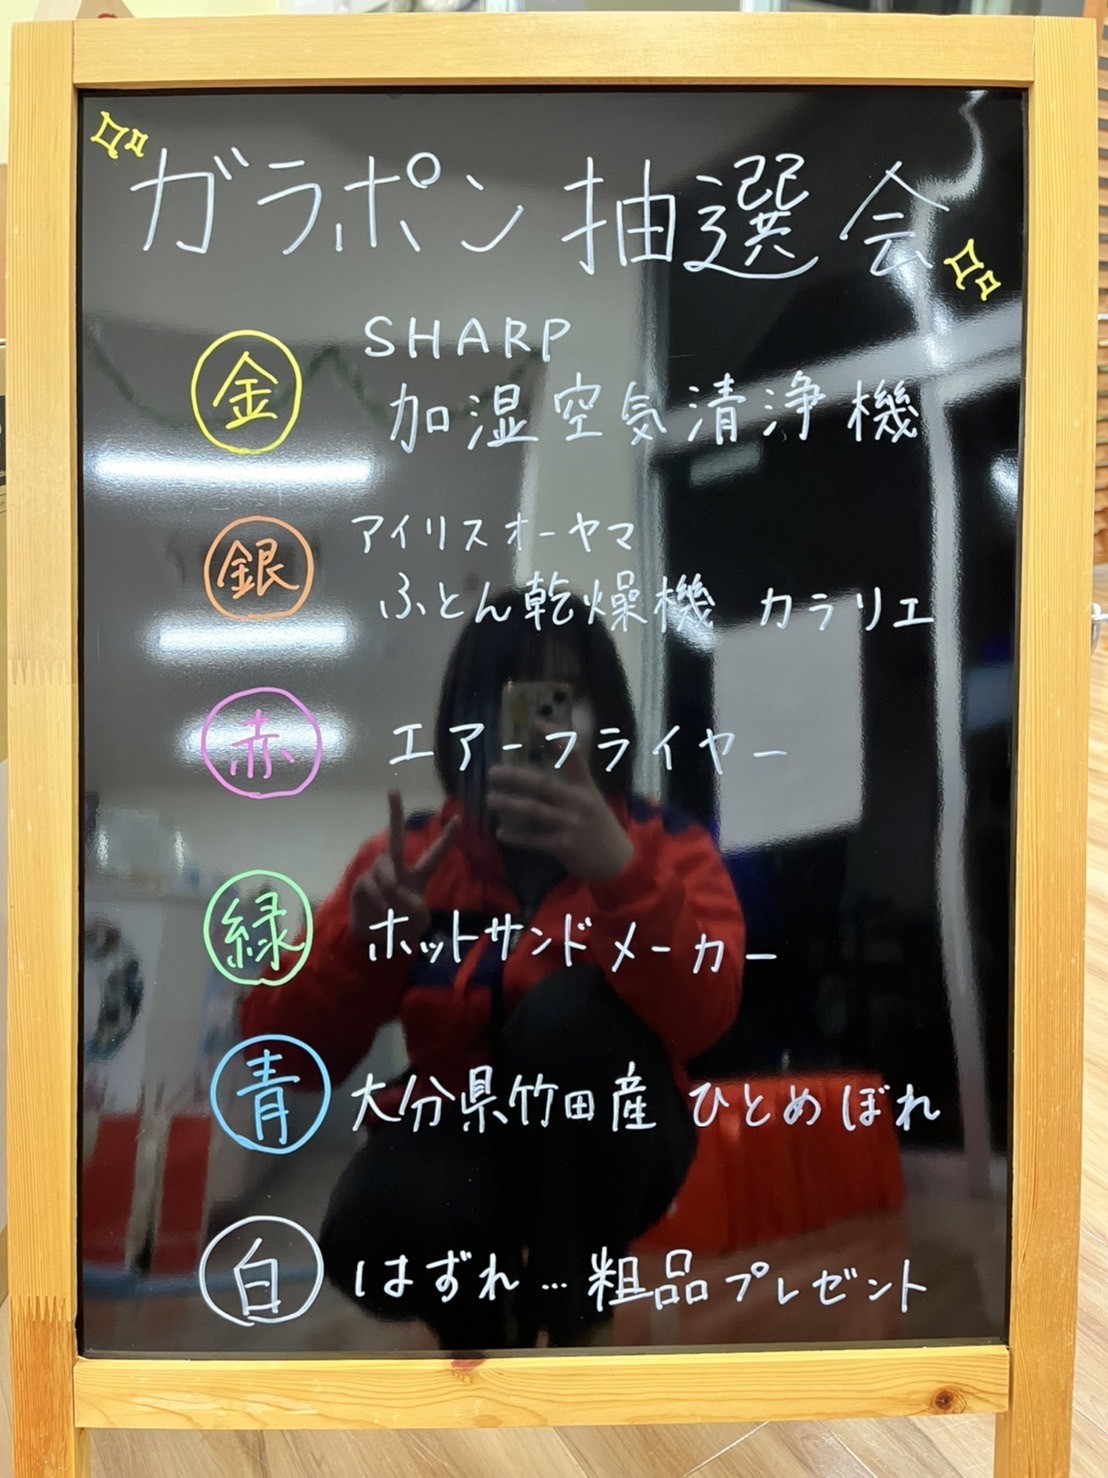 ガラポン抽選会
金
SHARP
加湿空気清浄機
銀
アイリスオーヤマ
ふとん乾燥機 カラリエ
赤 エアーフライヤー
緑 ホットサンドメーカー
青 大分県竹田産 ひとめぼれ
白 はずれ…粗品プレゼント